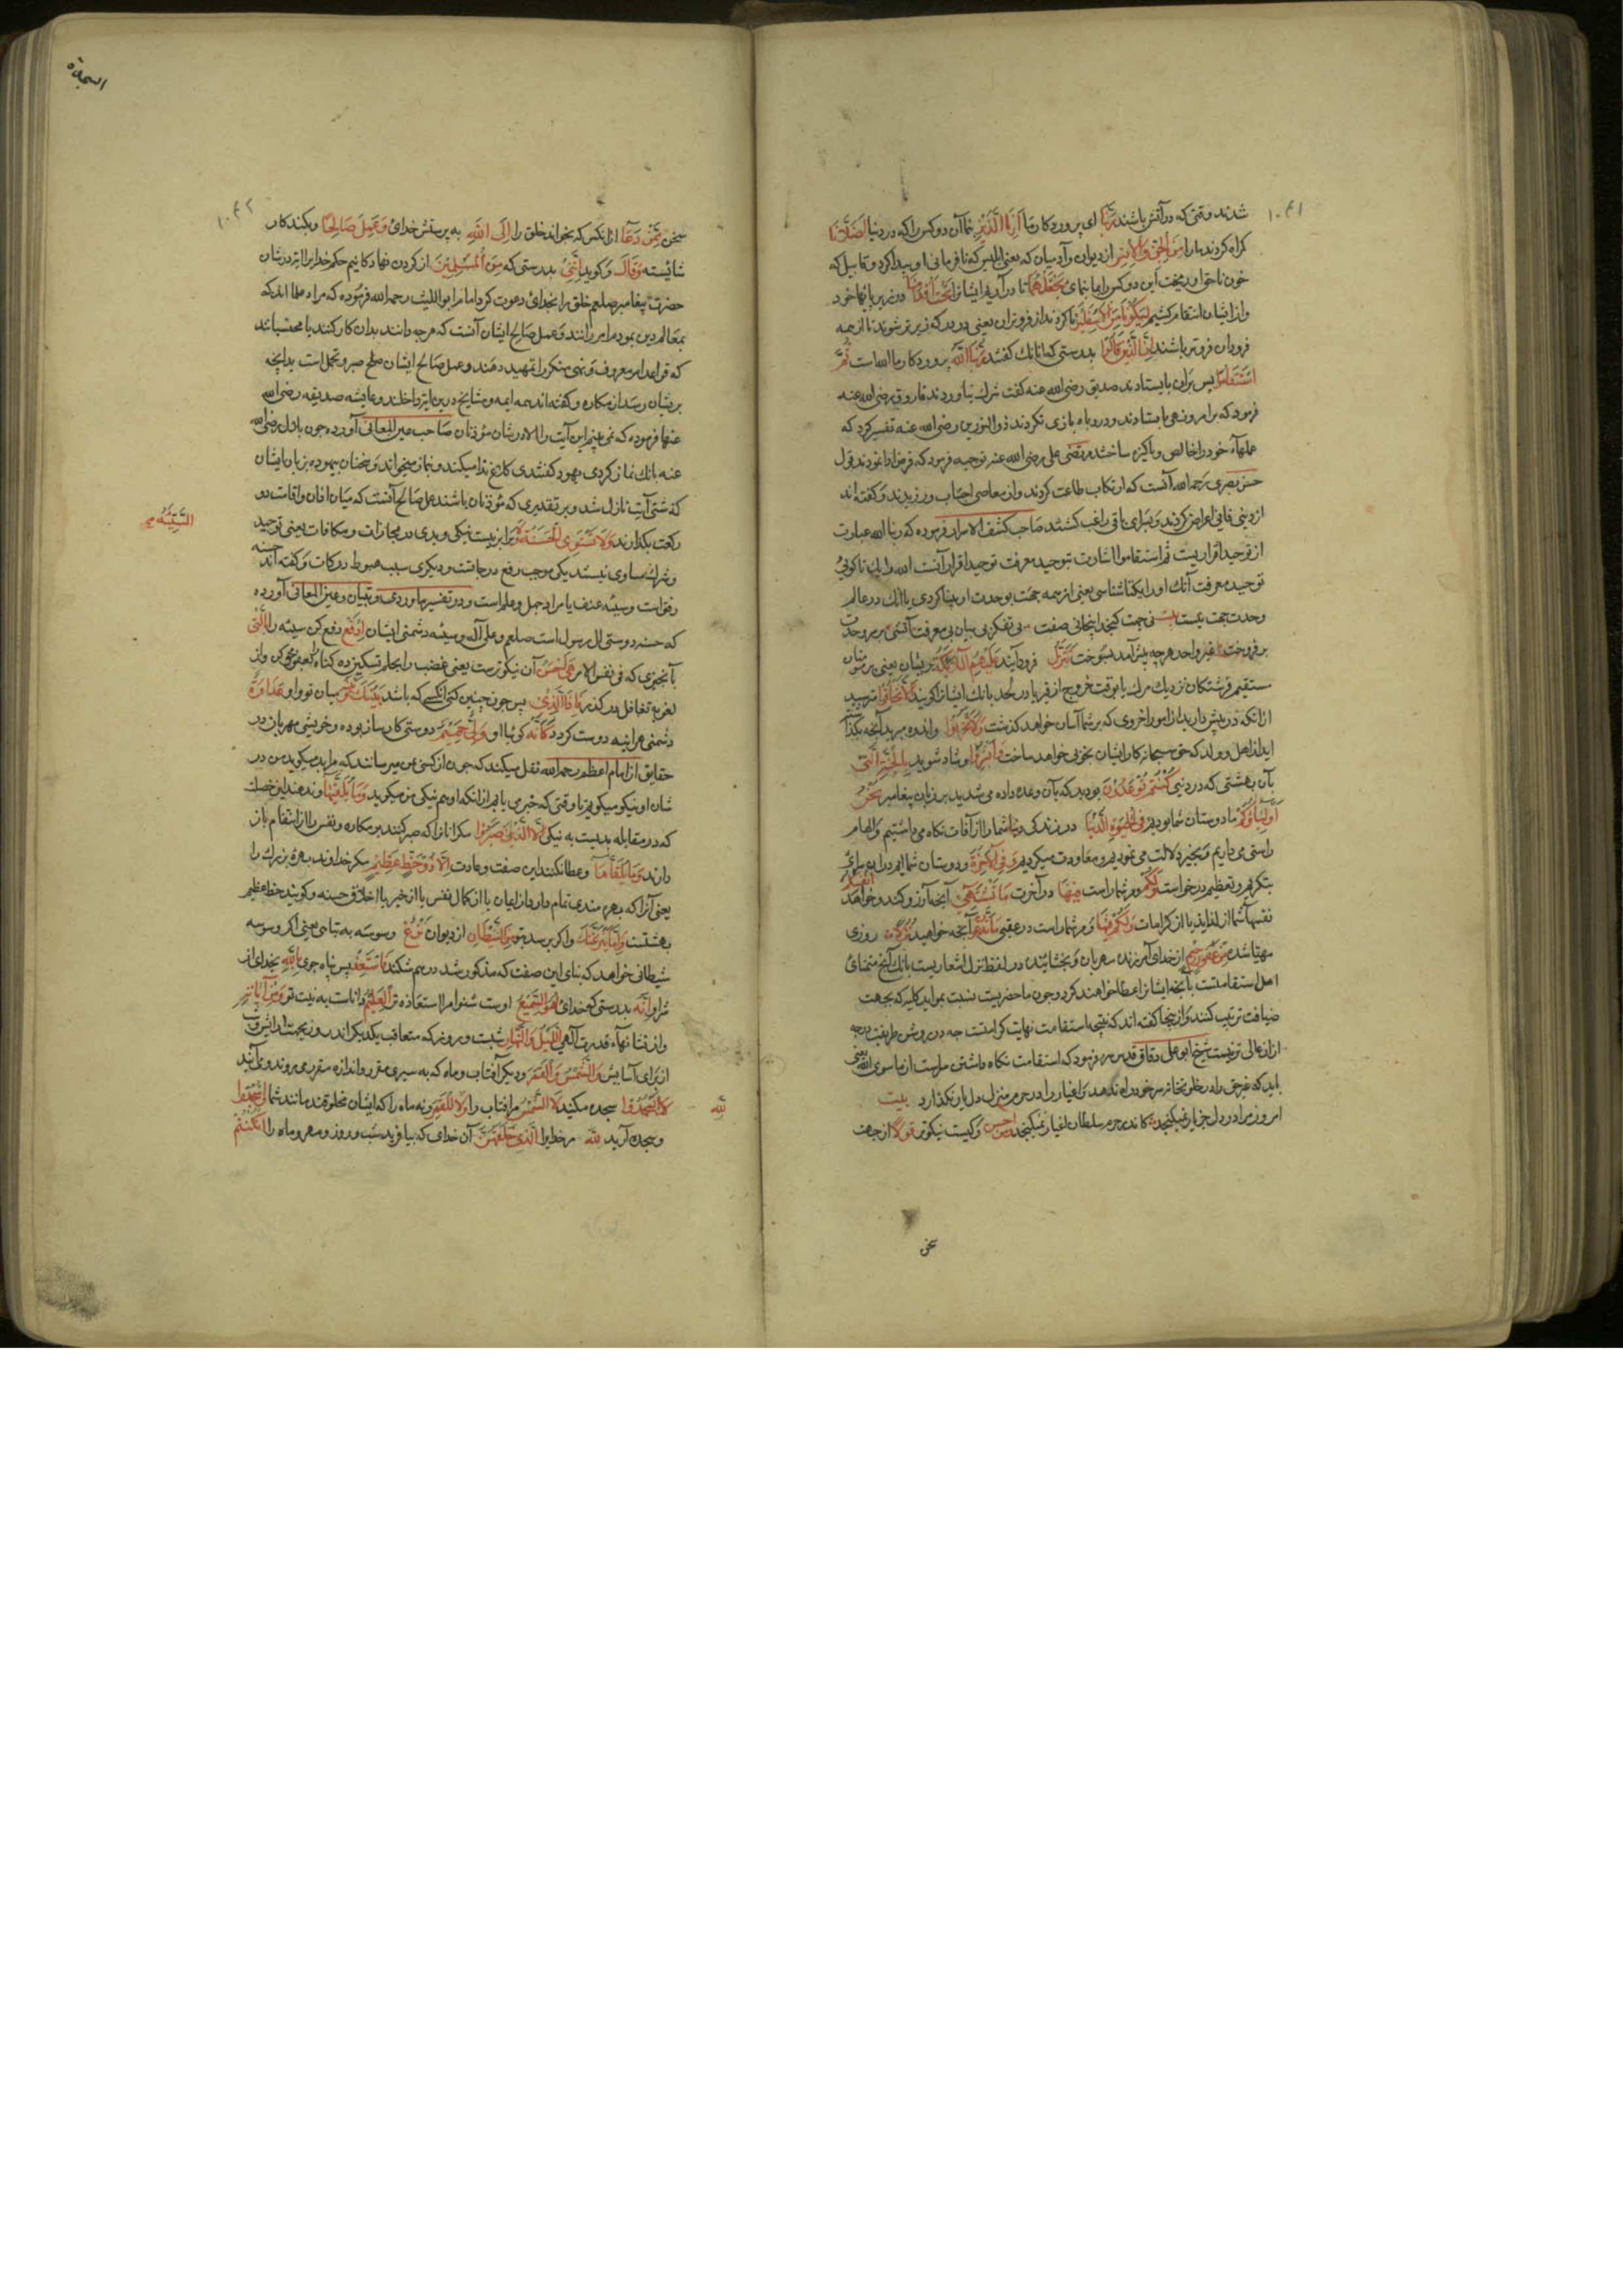 ۱۰۴۱
شدند وقتی که در آتش باشند رَبَّنَا ای پروردگار ما اَرِنَا الَّذَيْنِ بنما آن دو کس را که در دنیا اَضَلَّانَا
کمراه کردند ما را مِنَ الْجِنِّ وَالْاِنْسِ از دیوان و آدمیان که یعنی ابلیس که نافرمانی او پیدا کرد و قابیل که
خون ناحق او ریخت این دو کس را بما بنمای نَجْعَلْهُمَا تا در آریم ایشانرا تَحْتَ اَقْدَامِنَا در زیر پایهای خود
و از ایشان انتقام کشیم لِيَكُوْنَا مِنَ الْاَسْفَلِيْنَ تا کردند از فروتران یعنی در درکه زیرتر شوند تا از همه
فرودان فروتر باشند اِنَّ الَّذِيْنَ قَالُوْا بدرستی که آنانک کفتند رَبُّنَا اللّٰهُ پروردگار ما الله است ثُمَّ
اسْتَقَامُوْا پس بران بایستادند صدیق رضی الله عنه کفت شرک نیاوردند فاروق رضی الله عنه
فرمود که بر امر و نهی بایستادند و روباه بازی نکردند ذو النورین رضی الله عنه تفسیر کرد که
عملهاء خود را خالص و پاکیزه ساختند مرتضی علی رضی الله عنه توجیه فرمود که فرض ادا نمودند قول
حسن بصری رحمه الله آنست که ارتکاب طاعت کردند و از معاصی اجتناب ورزیدند و کفته اند
از دینی فانی اعراض کردند و بسرای باقی راغب کشتند صاحب کشف الاسرار فرموده که ربنا الله عبارت
از توحید اقرار یست ثم استقاموا اشارت بتوحید معرفت توحید اقرار آنست الله را یک تا کوئی
توحید معرفت آنک او را یکتا شناسی یعنی از همه جهت بوحدت او بینا کردی با آنک در عالم
وحدت جهت نیست بیت نی جهت کنجد اینجا نی صفت نی تفکر نی بیان نی معرفت آتشی بر سر وحدت
برفروخت غیر واحد هرچه پیش آمد بسوخت تَتَنَزَّلُ فرود آیند عَلَيْهِمُ الْمَلٰٓئِكَةُ بریشان یعنی بر مؤمنان
مستقیم فرشتکان نزدیک مرک یا بوقت خروج از قبر یا در لحد بآنک ایشانرا کویند اَلَّا تَخَافُوْا مترسید
از آنکه در پیش دارید از امور اخروی که بر شما آسان خواهد کذشت وَلَا تَحْزَنُوْا و اندوه مبرید آنچه بکذاشته
اید از اهل و ولد که حق سبحانه کار ایشان بخوبی خواهد ساخت وَاَبْشِرُوْا و شاد شوید بِالْجَنَّةِ الَّتِيْ
بآن بهشتی که در دنیی كُنْتُمْ تُوْعَدُوْنَ بودید که بآن وعده داده می شدید بر زبان پیغامبر نَحْنُ
اَوْلِيَاؤُكُمْ ما دوستان شما بودیم فِى الْحَيٰوةِ الدُّنْيَا در زندکی دنیا شما را از آفات نکاه می داشتیم و الهام
راستی می دادیم و بخیر دلالت می نمودیم و معاودت میکردیم وَفِى الْاٰخِرَةِ و دوستان شماایم در این سرای
بتکریم و تعظیم و درخواست وَلَكُمْ و مر شما راست فِيْهَا در آخرت مَا تَشْتَهِىْ آنچه آرزو کند و خواهد اَنْفُسُكُمْ
نفسهای شما از لذاید یا از کرامات وَلَكُمْ فِيْهَا و مر شما راست در عقبی مَا تَدَّعُوْنَ آنچه خواهید نُزُلًا روزی
مهیا شده مِنْ غَفُوْرٍ رَحِيْمٍ از خدای آمرزنده مهربان و بخشاینده در لفظ نزل اشعاریست بآنک آنچ متمنای
اهل استقامتست بآنچه ایشانرا عطا خواهند کرد چون ما حضریست نسبت بمواید کلیه که بجهت
ضیافت ترتیب کنند و از اینجا کفته اند که نتیجه استقامت نهایت کرامتست چه در روش طریقت درجه
ازان عالی تر نیست شیخ ابو علی دقاق قدس سره فرمود که استقامت نکاه داشتن سراست از ما سوی الله یعنی
باید که غیر حق راه در خلوتخانه سر خود راه ندهد و اغیار را در حرم منزل دل بار نکذارد بیت
امروز مرا در دل جز یار نمیکنجد کاندر حرم سلطان اغیار نمیکنجد وَمَنْ اَحْسَنُ و کیست نیکوتر قَوْلًا از جهت
سخن
السجدة
۱۰۴۲
سخن مِمَّنْ دَعَا از آنکس که بخواند خلق را اِلَى اللّٰهِ به پرستش خدای وَعَمِلَ صَالِحًا و بکند کار
شائسته وَقَالَ و کوید اِنَّنِىْ بدرستی که من مِنَ الْمُسْلِمِيْنَ از کردن نهادکانیم حکم خدا را این در شان
حضرت پیغامبر صلعم خلق را بخدای دعوت کرد امام ابو اللیث رحمه الله فرموده که مراد علما اند که
بمعالم دین بمردم امر رانند و عمل صالح ایشان آنست که هرچه دانند بدان کار کنند یا محتسبانند
که قواعد امر معروف و نهی منکر را تمهید دهند و عمل صالح ایشان صلح صبر و تحمل است بدانچه
بریشان رسد از مکاره و کفته اند همه ایمه و مشایخ درین آیة داخلند و عایشه صدیقه رضی الله
عنها فرموده که نمی بینم این آیت را الا در شان مؤذنان صاحب عین المعانی آورده چون بلال رضی الله
عنه بانک نماز کردی یهود کفتندی کلاغ ندا میکند و بنماز میخواند و سخنان بیهوده بر زبان ایشان
کذشتی آیت نازل شد و بر تقدیری که مؤذنان باشند عمل صالح آنست که میان اذان و اقامت دو
رکعت بکذارند وَلَا تَسْتَوِى الْحَسَنَةُ وَلَا برابر نیست نیکی و بدی در مجازات و مکافات یعنی توحید
السَّيِّئَةُ صح
و شرک مساوی نیستند یکی موجب رفع درجاتست و دیکری سبب هبوط درکات و کفته اند حسنه
رفق است و سیئه عنف یا مراد جهل و علم است و در تفسیر ماوردی و تبیان و عین المعانی آورده
که حسنه دوستی آل رسول است صلعم و علی آله و سیئه دشمنی ایشان اِدْفَعْ دفع کن سیئه را بِالَّتِىْ
بآنچیزی که فی نفس الامر هِىَ اَحْسَنُ آن نیکوترست یعنی غضب را بحلم تسکین ده کناه را بعفو محو کن و از
لغزیه تغافل در کذر فَاِذَا الَّذِىْ پس چون چنین کنی آنکسی که باشد بَيْنَكَ وَبَيْنَهُ میان تو و او عَدَاوَةٌ
دشمنی هرآینه دوست کردد كَاَنَّهُ کوئیا او وَلِىٌّ حَمِيْمٌ دوستی کارساز بوده و خویشی مهربان در
حقایق از امام اعظم رحمه الله نقل میکند که چون از کسی بمن میرسانند که مرا بد میکوید من در
شان او نیکو میکویم تا وقتی که خبر می یابم از آنکه او هم نیکی من میکوید وَمَا يُلَقّٰيهَا و ندهند این خصلت
که در مقابله بدیست به نیکی اِلَّا الَّذِيْنَ صَبَرُوْا مکر آنانرا که صبر کنند بر مکاره و نفس را از انتقام باز
دارند وَمَا يُلَقّٰيهَا و عطا نکنند این صفت و عادت اِلَّا ذُوْ حَظٍّ عَظِيْمٍ مکر خداوند بهره بزرک را
یعنی آنرا که بهره مندی تمام دارد از ایمان یا از کمال نفس یا از خیر یا اخلاق حسنه و کویند حظ عظیم
بهشتست وَاِمَّا يَنْزَغَنَّكَ و اکر برسد بتو مِنَ الشَّيْطَانِ از دیوان نَزْغٌ وسوسه به تباهی یعنی اکر وسوسه
شیطانی خواهد که بنای این صفت که مذکور شد در هم شکند فَاسْتَعِذْ پس پناه جوی بِاللّٰهِ بخدای از
شر او اِنَّهُ بدرستی که خدای هُوَ السَّمِيْعُ اوست شنوا مر استعاذه ترا الْعَلِيْمُ دانا است به نیت تو وَمِنْ اٰيَاتِهِ
و از نشانهاء قدرت الهی اللَّيْلُ وَالنَّهَارُ شبست و روز که متعاقب یکدیکراند روز بجهت
از برای آسایش وَالشَّمْسُ وَالْقَمَرُ و دیکر آفتاب و ماه که به سیری مقرر و اندازه مقرر می روند و می آیند
لَا تَسْجُدُوْا سجده مکنید لِلشَّمْسِ مر آفتاب را وَلَا لِلْقَمَرِ و نه ماه را که ایشان مخلوقند مانند شما وَاسْجُدُوْا
لِلّٰهِ
و سجده آرید لِلّٰهِ مر خدایرا الَّذِىْ خَلَقَهُنَّ آن خدای که بیافرید شب و روز و مهر و ماه را اِنْ كُنْتُمْ